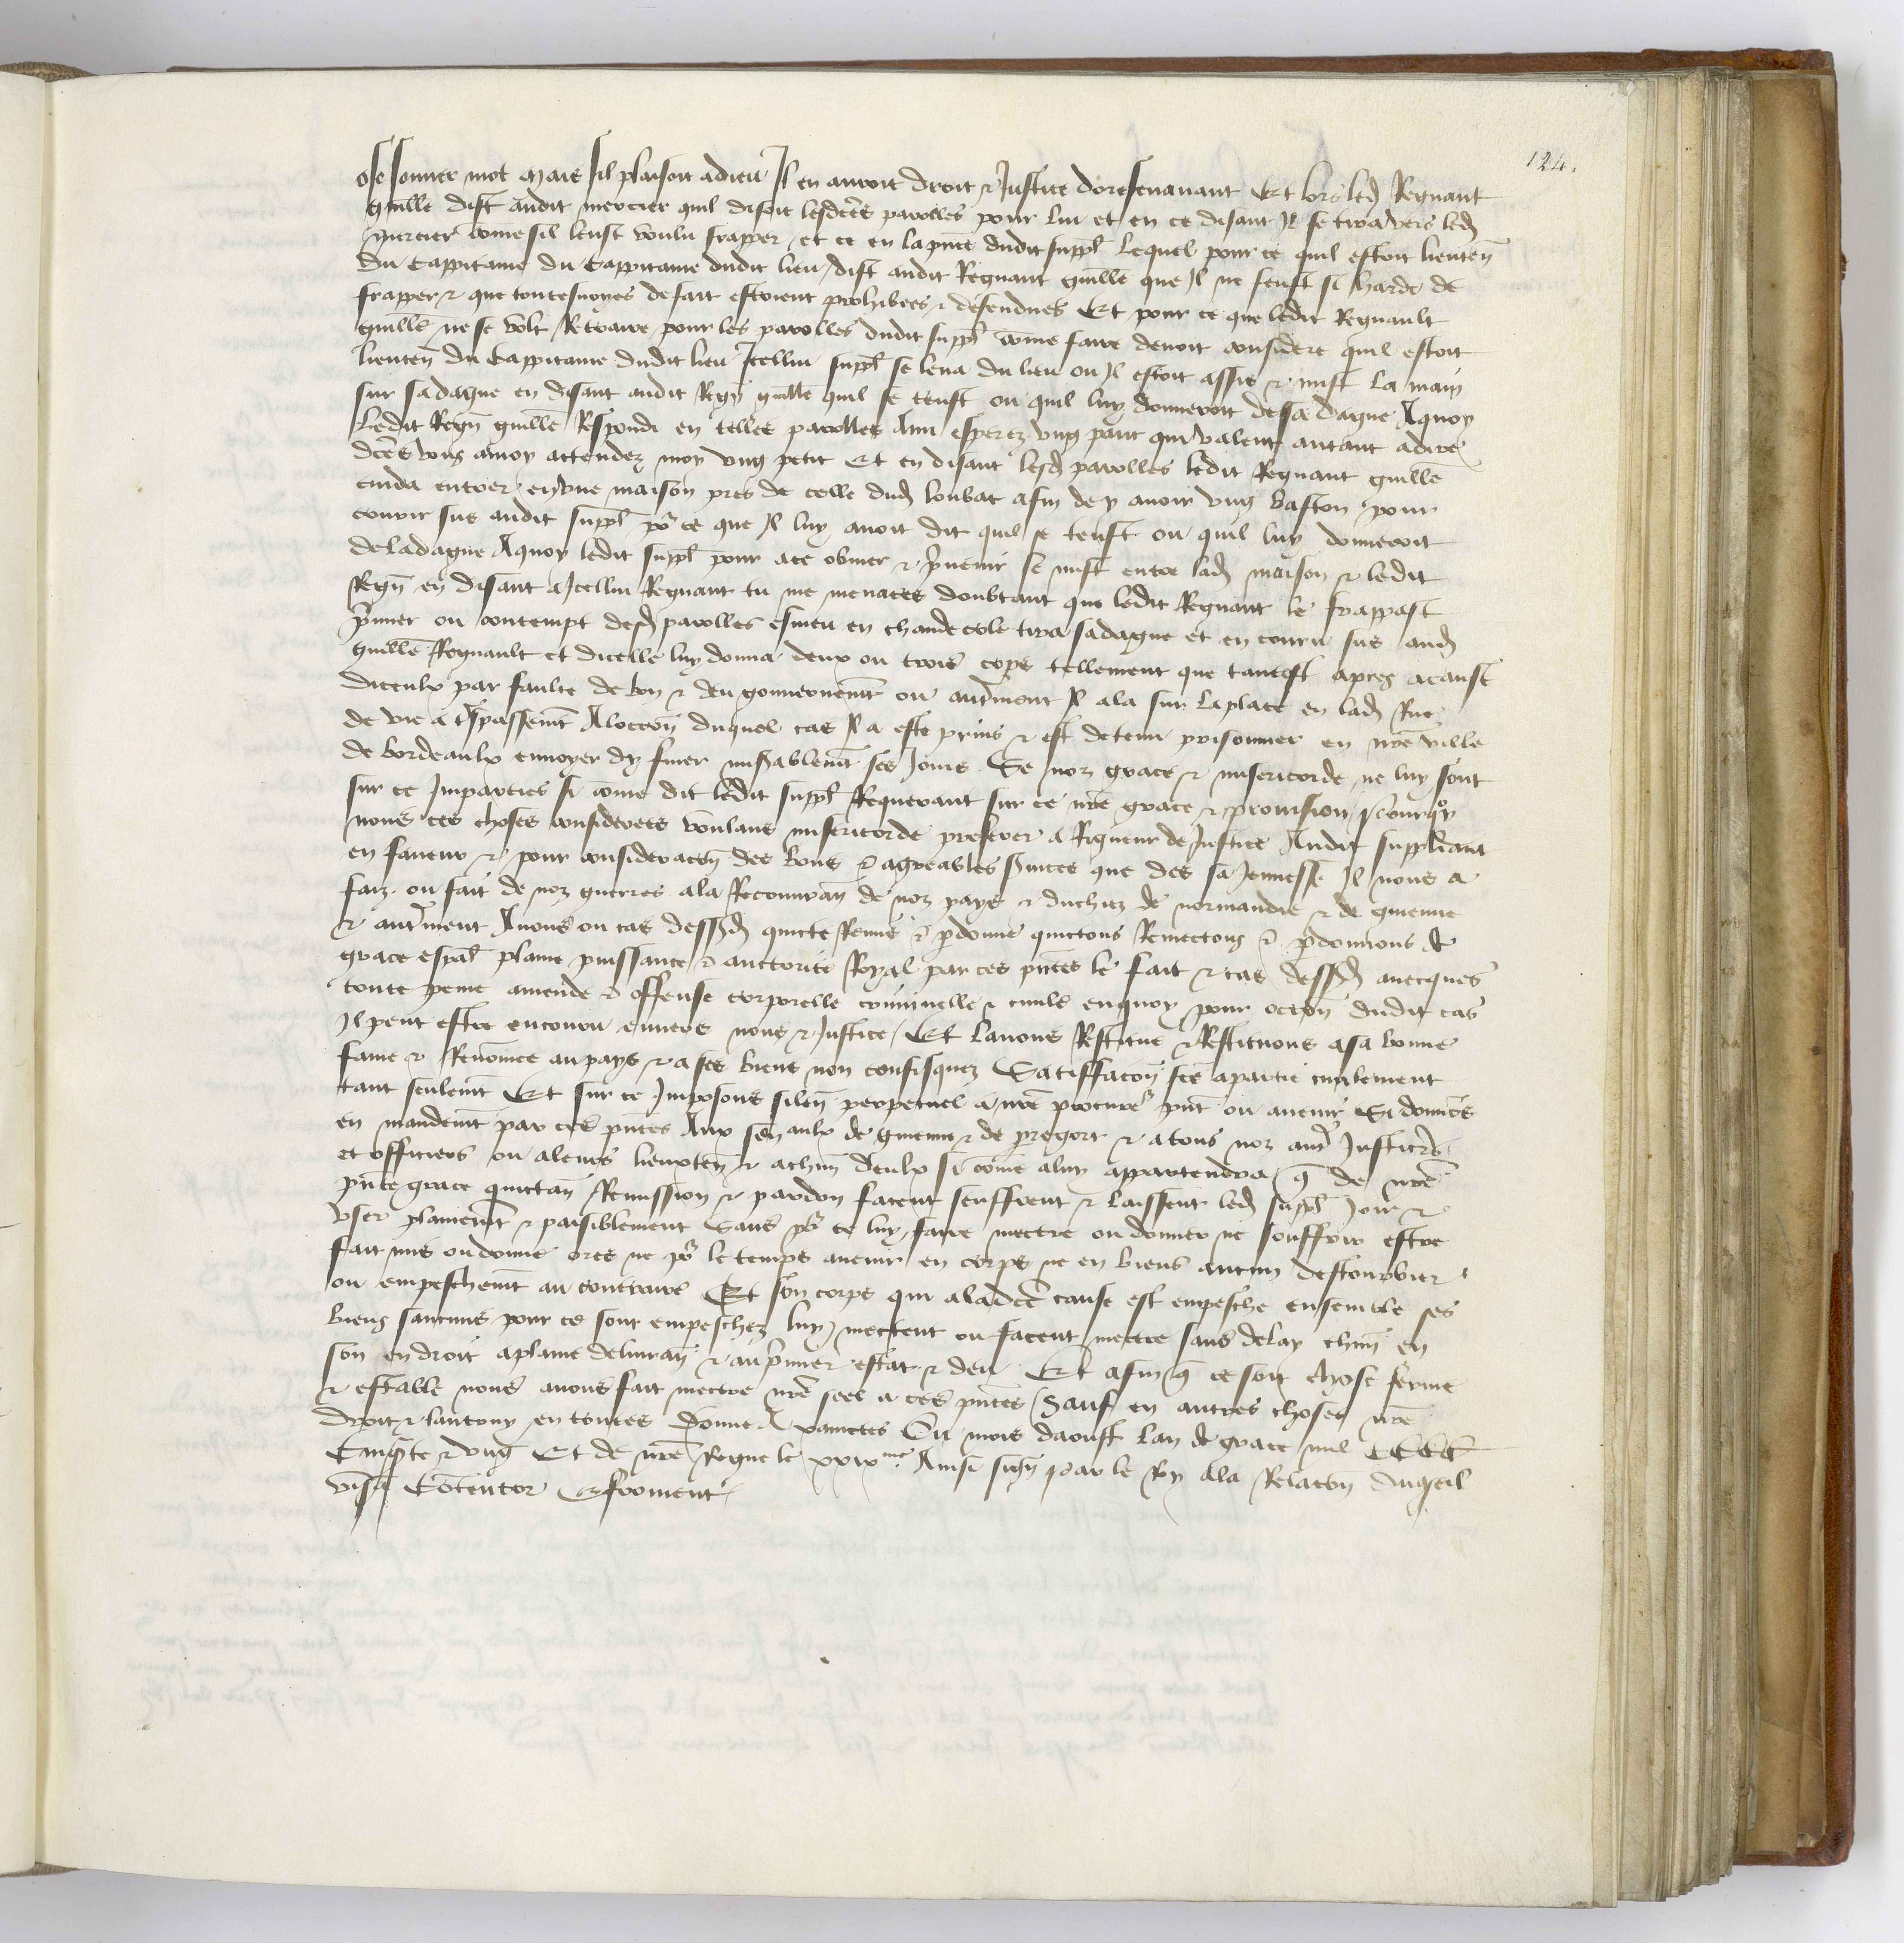 124.
ose sonner mot mais sil plaisoit adieu Il en auroit droit & Justice doresenauant Et lors led Regnaut
guille dist audit mercier quil disoit lesdces parolles pour lui et en ce disant Il se tira vers led
mercier come sil leust voulu frapper et ce en la pnce dudit suppl Lequel pour ce quil estoit lieuten
du Cappitaine du Cappitaine dudit lieu dist audit Regnaut guille que Il ne feust si hardi de
frapper & que toutesuoyes de fait estoient prohibees & defendues Et pour ce que ledit Regnault
guille ne se volt Retraire pour les parolles dudit suppl come faire deuoit considere quil estoit
lieuten du Cappitaine dudit lieu Icellui suppl se leua du lieu ou Il estoit assis & mist la main
sur sa dague en disant audit Regn guille quil se teust ou quil luy donneroit de sa dague Aquoy
Ledit Regn guille Respondi en telles parolles Ami esperez vng pauc qui valent autant adire
dces vous amoy attendez moy vng petit Et en disant lesd parolles ledit Regnaut guille
cuida entrer en vne maison pres de celle dud loubat afin dey auoir vng baston pour
courir sus audit suppl pour ce que Il luy auoit dit quil se teust ou quil luy donneroit
de la dague Aquoy ledit suppl pour ace obuier & preuenir se mist entre lad maison & ledit
Regn en disant a Icellui Regnaut tu me menaces doubtant que ledit Regnaut le frappast
primier ou contempt desd parolles esmeu en chaude cole tira sadague et en couru sus aud
guille Regnault et dicelle luy donna deux ou trois cops tellement que tantost apres acause
diceulx par faulte de bon & deu gouuernemt ou autrement Il ala sur la place en lad Rue
de vie a trespassemt Aloccon duquel cas Il a este prins & est detenu prisonnier en nre ville
de bordeaulx ennoyer dy finer miserablemt ses Jours Se noz grace & misericorde ne luy sont
sur ce Imparties si come dit ledit suppl Requerant sur ce nre grace & prouision pourquoy
nous ces choses considerees voulans misericorde preferer a Rigueur de Justice Audit suppliant
en faueur & pour consideracon des bons & agreables seruices que des sa Jeunesse Il nous a
faiz ou fait de noz guerres ala Recouuran de noz pays & duchiez de normandie & de guienne
& autrement Auons ou cas dessusd quicte Remis & pardonne quictons Remectons & pardonnons de
grace espal plaine puissance & auctorite Royal par ces pntes le fait & cas dessusd auecques
toute peine amende & offense corporelle criminelle & ciuile enquoy pour occon dudit cas
Il peut estre encouru enuers nous & Justice Et lauons Restitue & Restituons asa bonne
fame & Renomee au pays & a ses biens non confisquez Satiffacon fce apartie ciuilement
tant seulemt Et sur ce Imposons silen perpetuel a nre procure pnt ou auenir Si donnos
en mandemt par ces pntes Aux senaulx de guienne & de peregort & atous noz autres Justicies
et officiers ou aleurs lieuxten & achun deulx si come aluy appartendra que de nre
pnte grace quictan Remission & pardon facent seuffrent & laissent led suppl Joir &
vser plainemt & paisiblement Sans pour ce luy faire mectre ou donner ne souffrir estre
fait mis ou donne ores ne pour le temps auenir en corps ne en biens aucun destourbier
ou empeschemt au contraire Et son corps qui aladce cause est empesche ensemble ses
biens saucuns pour ce sont empeschez luy mectent ou facent mectre sans delay chun en
son endroit aplaine deliuran & au primier estat & deu Et afin que ce soit chose ferme
& estable nous auons fait mectre nre seel a ces pntes Sauf en autres choses nre
droit & lautruy en toutes Donne A vanctes Ou mois daoust lan de grace mil CCCC
Cinqte & vng Et de nre Regne le xxixme Ainsi sign par le Roy ala Relacon duqseil
visa Contentor E froment